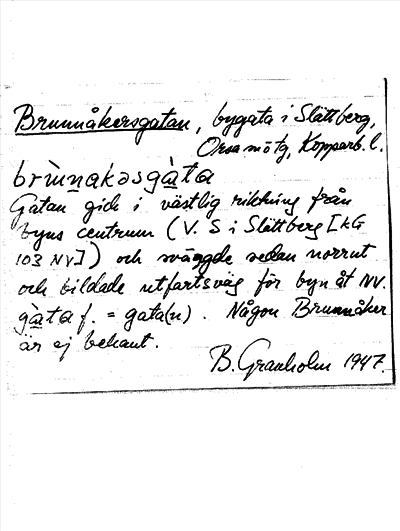 Brunnåkersgatan, bygata i Slättberg,
Orsa sn o tg, Kopparb. l.
brìǹn̠akəsgàta
Gatan gick i västlig riktning från
byns centrum (V. S i Slättberg [KG
103 NV]) och svängde sedan norrut
och bildade utfartsväg för byn åt NV.
gàta f. = gata(n). Någon Brunnåker
är ej bekant.
B. Granholm 1947.